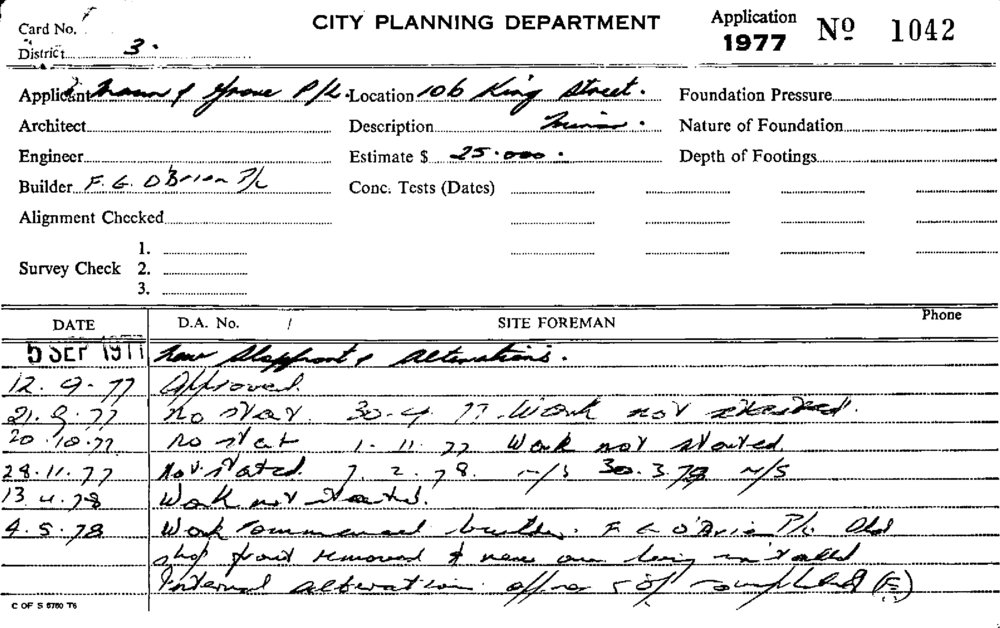 Card No.
CITY PLANNING DEPARTMENT
Application 1977 Nº 1042
District 3.
Applicant & Grove P/L. Location 106 King Street. Foundation Pressure
Architect Description Minor. Nature of Foundation
Engineer Estimate $ 25.000. Depth of Footings
Builder F. G. O'Brien P/L Conc. Tests (Dates)
Alignment Checked
Survey Check 1.
2.
3.
DATE D.A. No. SITE FOREMAN Phone
5 SEP 1977 New Shopfront & Alterations.
12. 9. 77 Approved.
21. 9. 77 no start 77. Work not started.
20. 10. 77 no start 1. 11. 77 Work not started.
28. 11. 77 Not started. 7. 2. 78. N/S 30. 3. 78 N/S
13. 4. 78 Work not started.
4. 5. 78 Work commenced builder. F G O'Brien P/L Old
shop front removed & new one being installed
Internal alterations (F)
C OF S 5760 T6